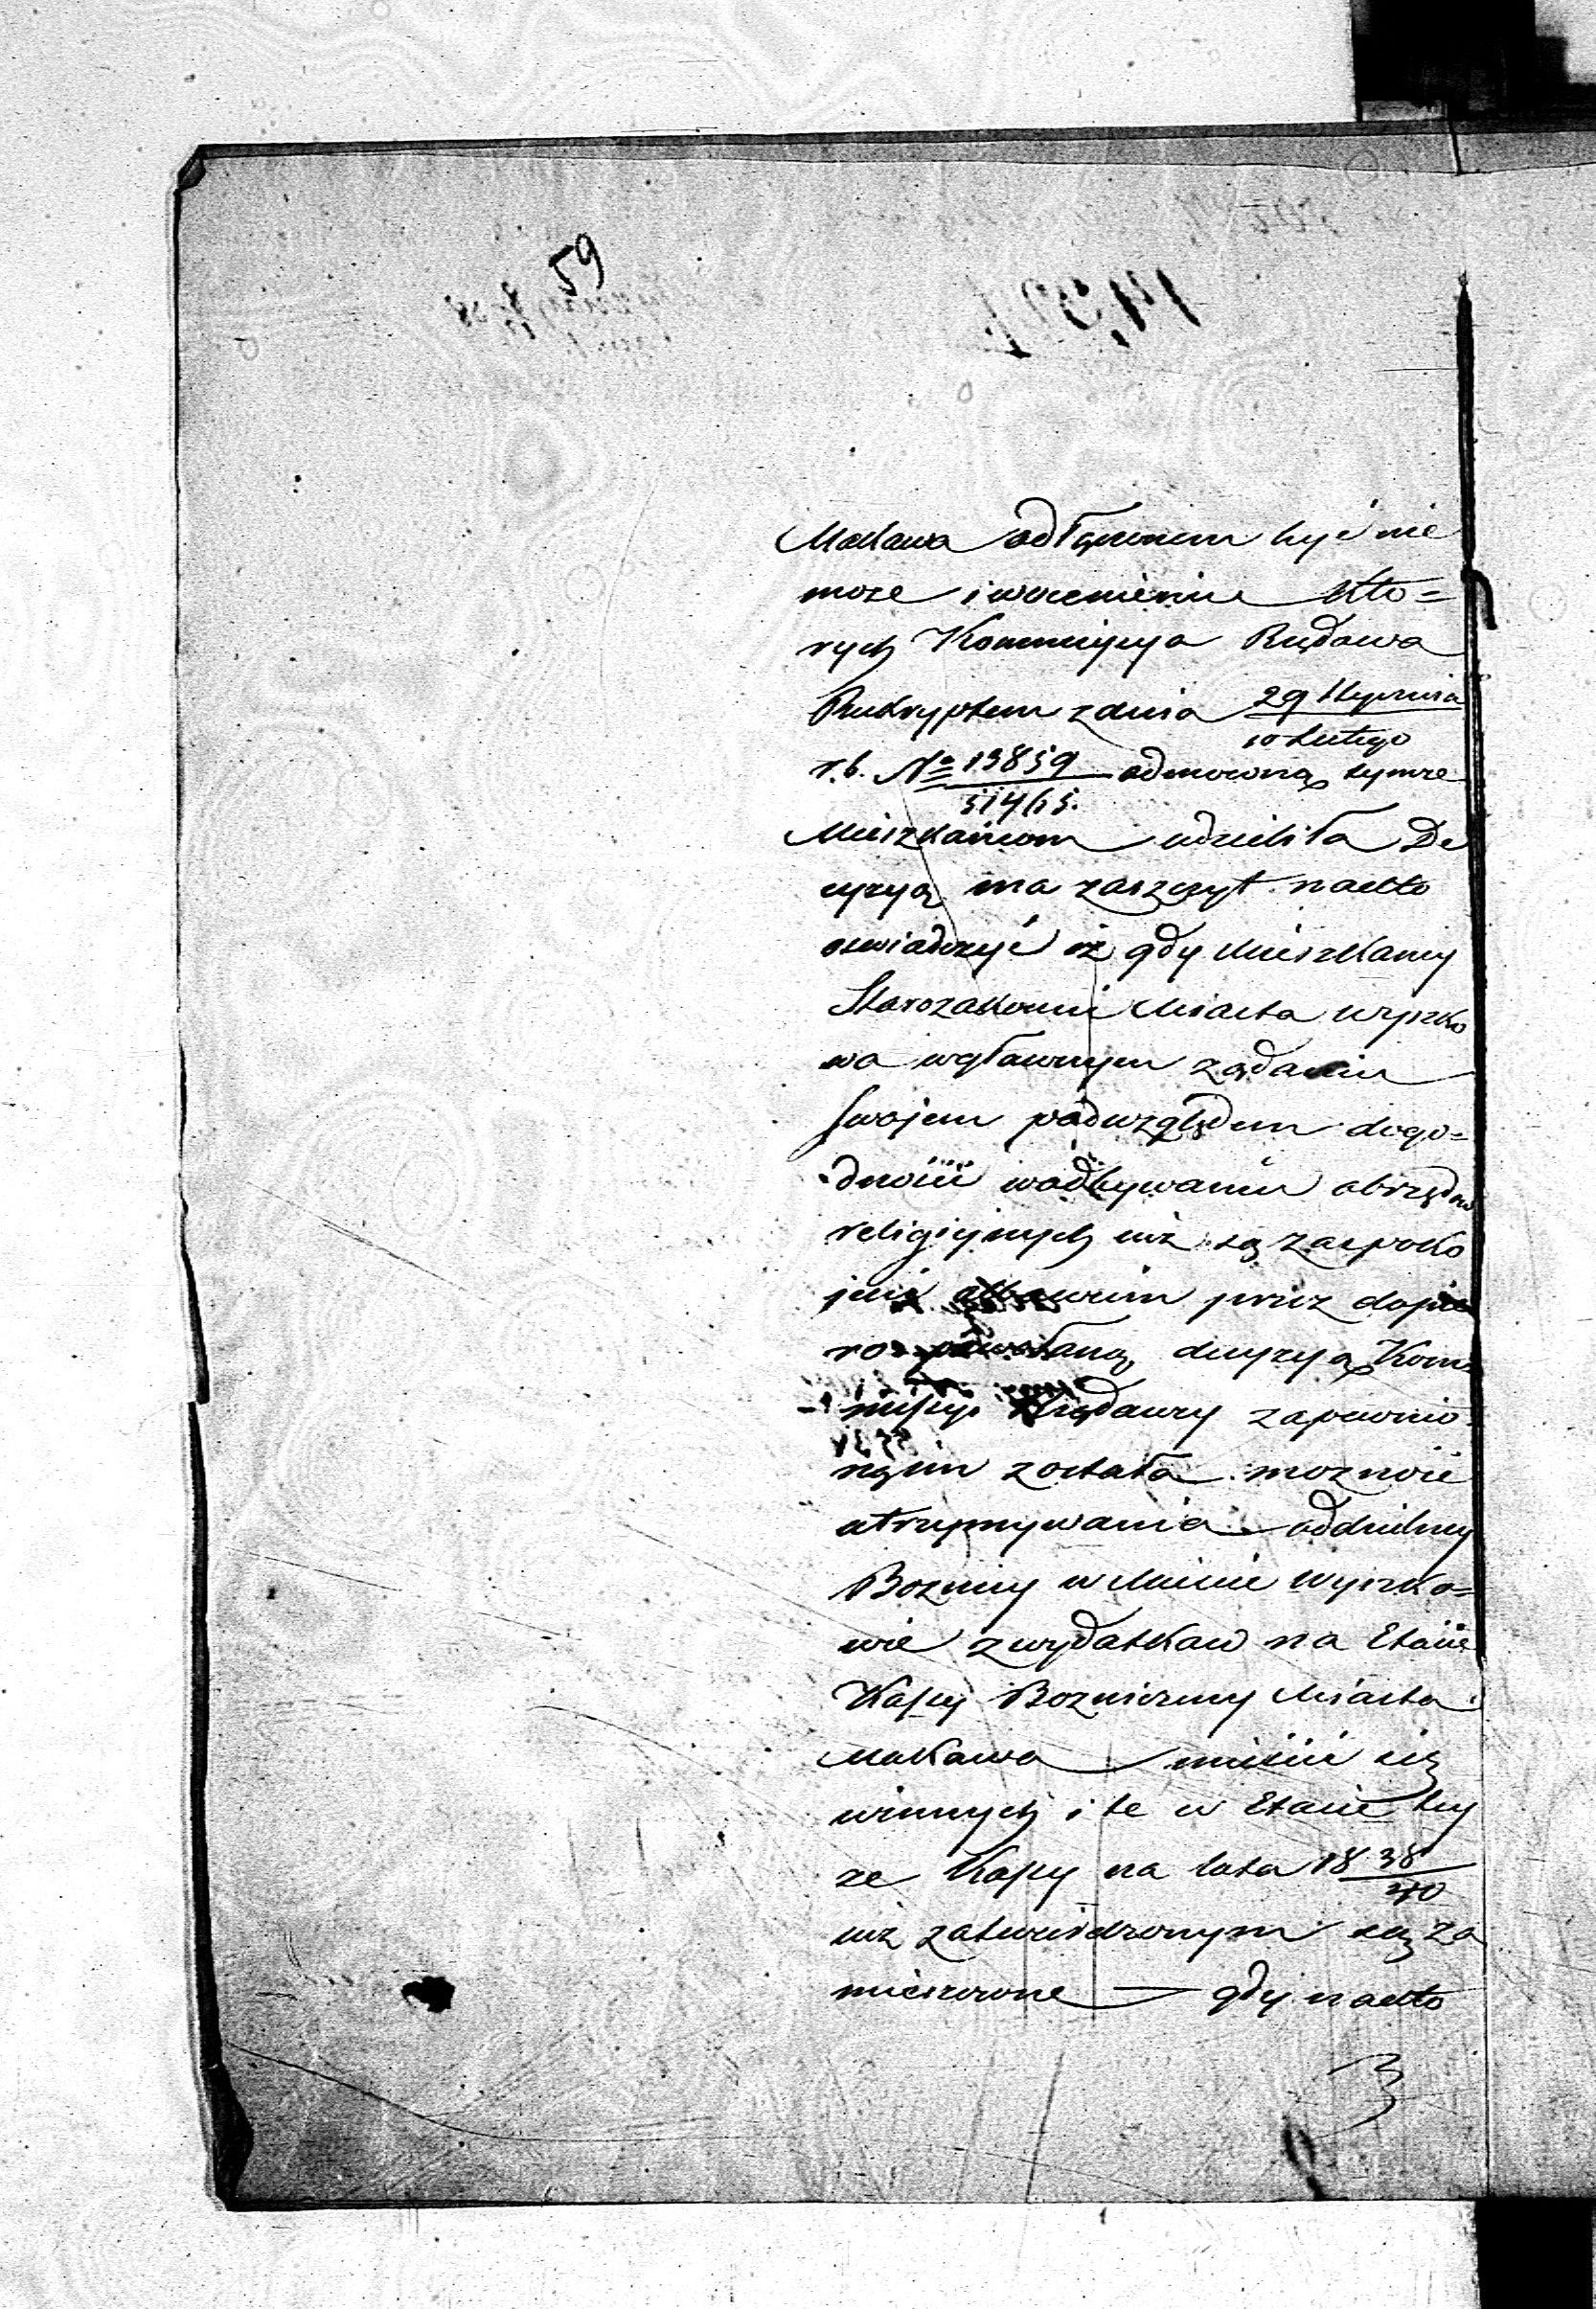 59
Makowa odłączonem być nie
może i w ocenieniu któ=
rych Kommissyja Rządowa
Reskryptem z dnia 29 Stycznia / 10 Lutego
r. b. No 13859 / odmowną tymże
Mieszkańcom udzieliła De
cyzyą ma zaszczyt nadto
oswiadczyć iż gdy Mieszkańcy
Starozakonni Miasta Wyszko
wa w głownym żądaniu
swojem pod względem dogo=
dności w odbywaniu obrzędow
religijnych już są zaspoko
jeni albowiem przez dopie
ro powołaną decyzyą Kom
missyi Rządowey zapewnio
ną im została możność
utrzymywania oddzielney
Boznicy w Mieście Wyszko=
wie z wydatkow na Etacie
Kassy Bozniczney Miasta
Makowa mieścić się
winnych i te w Etacie tey
że Kassy na lata 18 38/40
już zatwierdzonym są za
mieszczone — gdy nadto